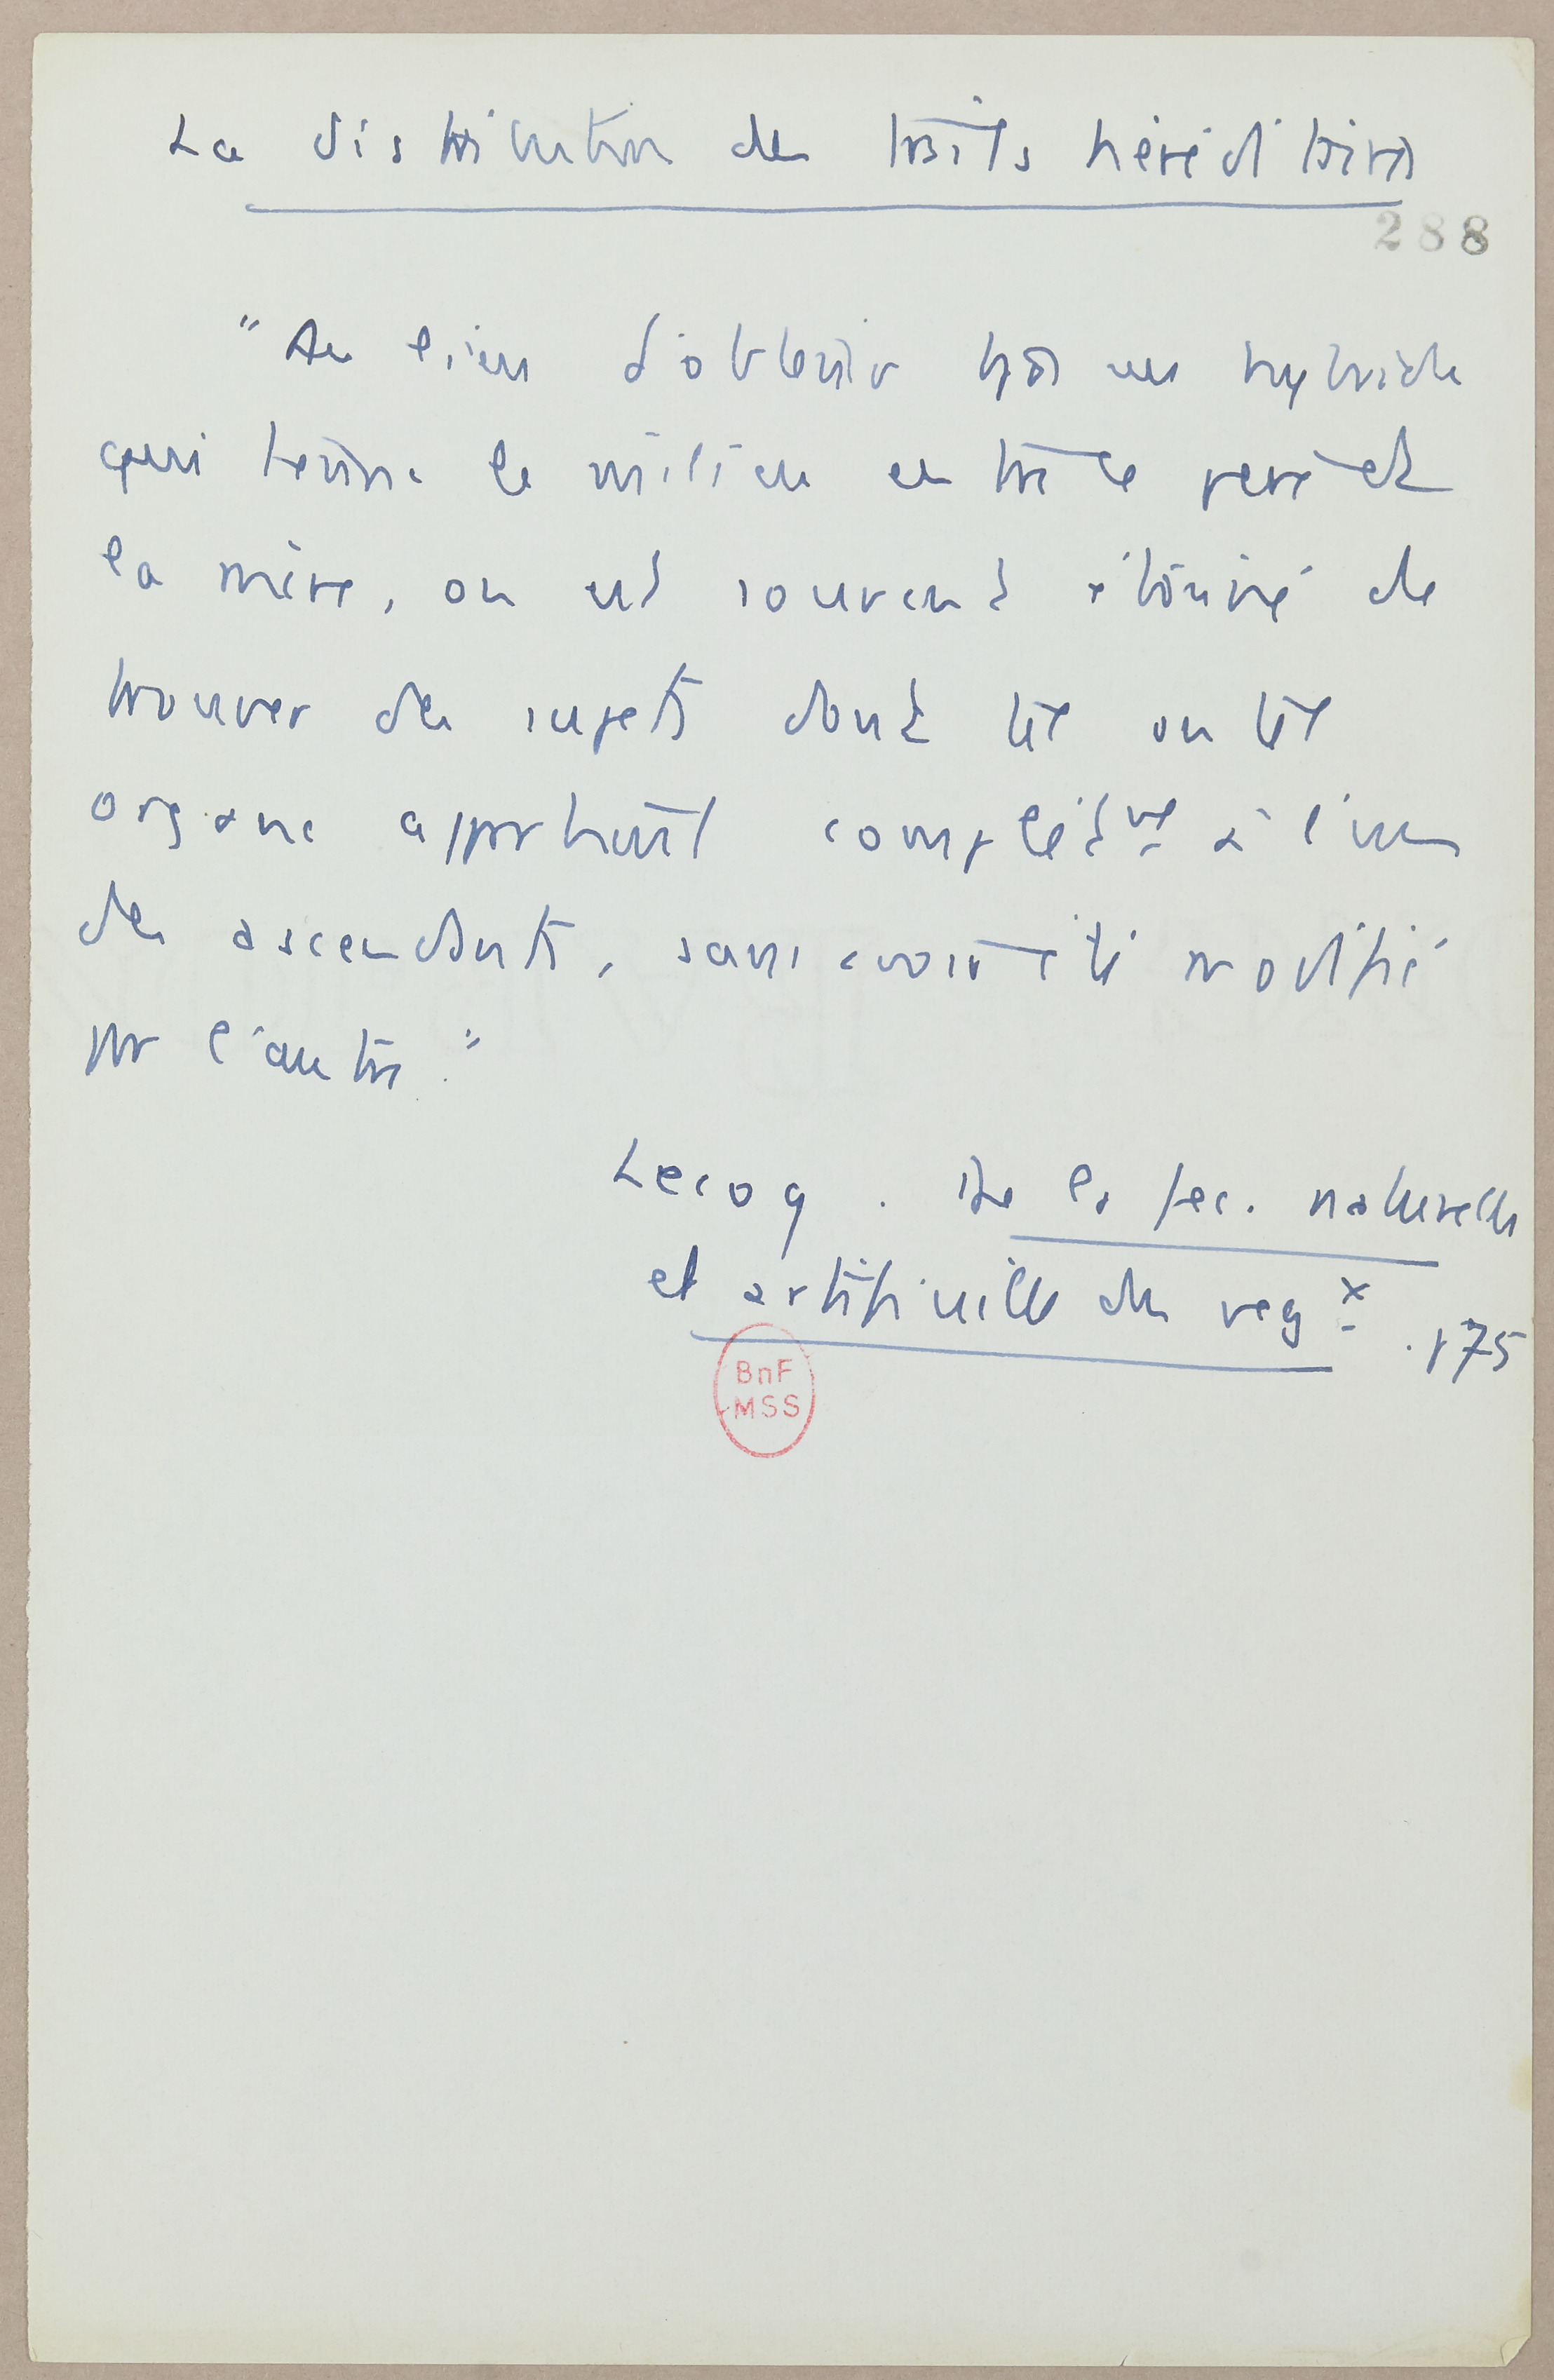 La distribution des traits héréditaires
288
"Au lieu d'obtenir un hybride
qui tienne le milieu entre le père et
la mère, on est souvent étonné de
trouver des sujets dont tel ou tel
organe appartient complètᵐᵗ à l'un
des ascendants, sans avoir été modifié
par l'autre."
Lecoq. De la fec. naturelle
et artificielle des vegˣ. 175
BnF
MSS